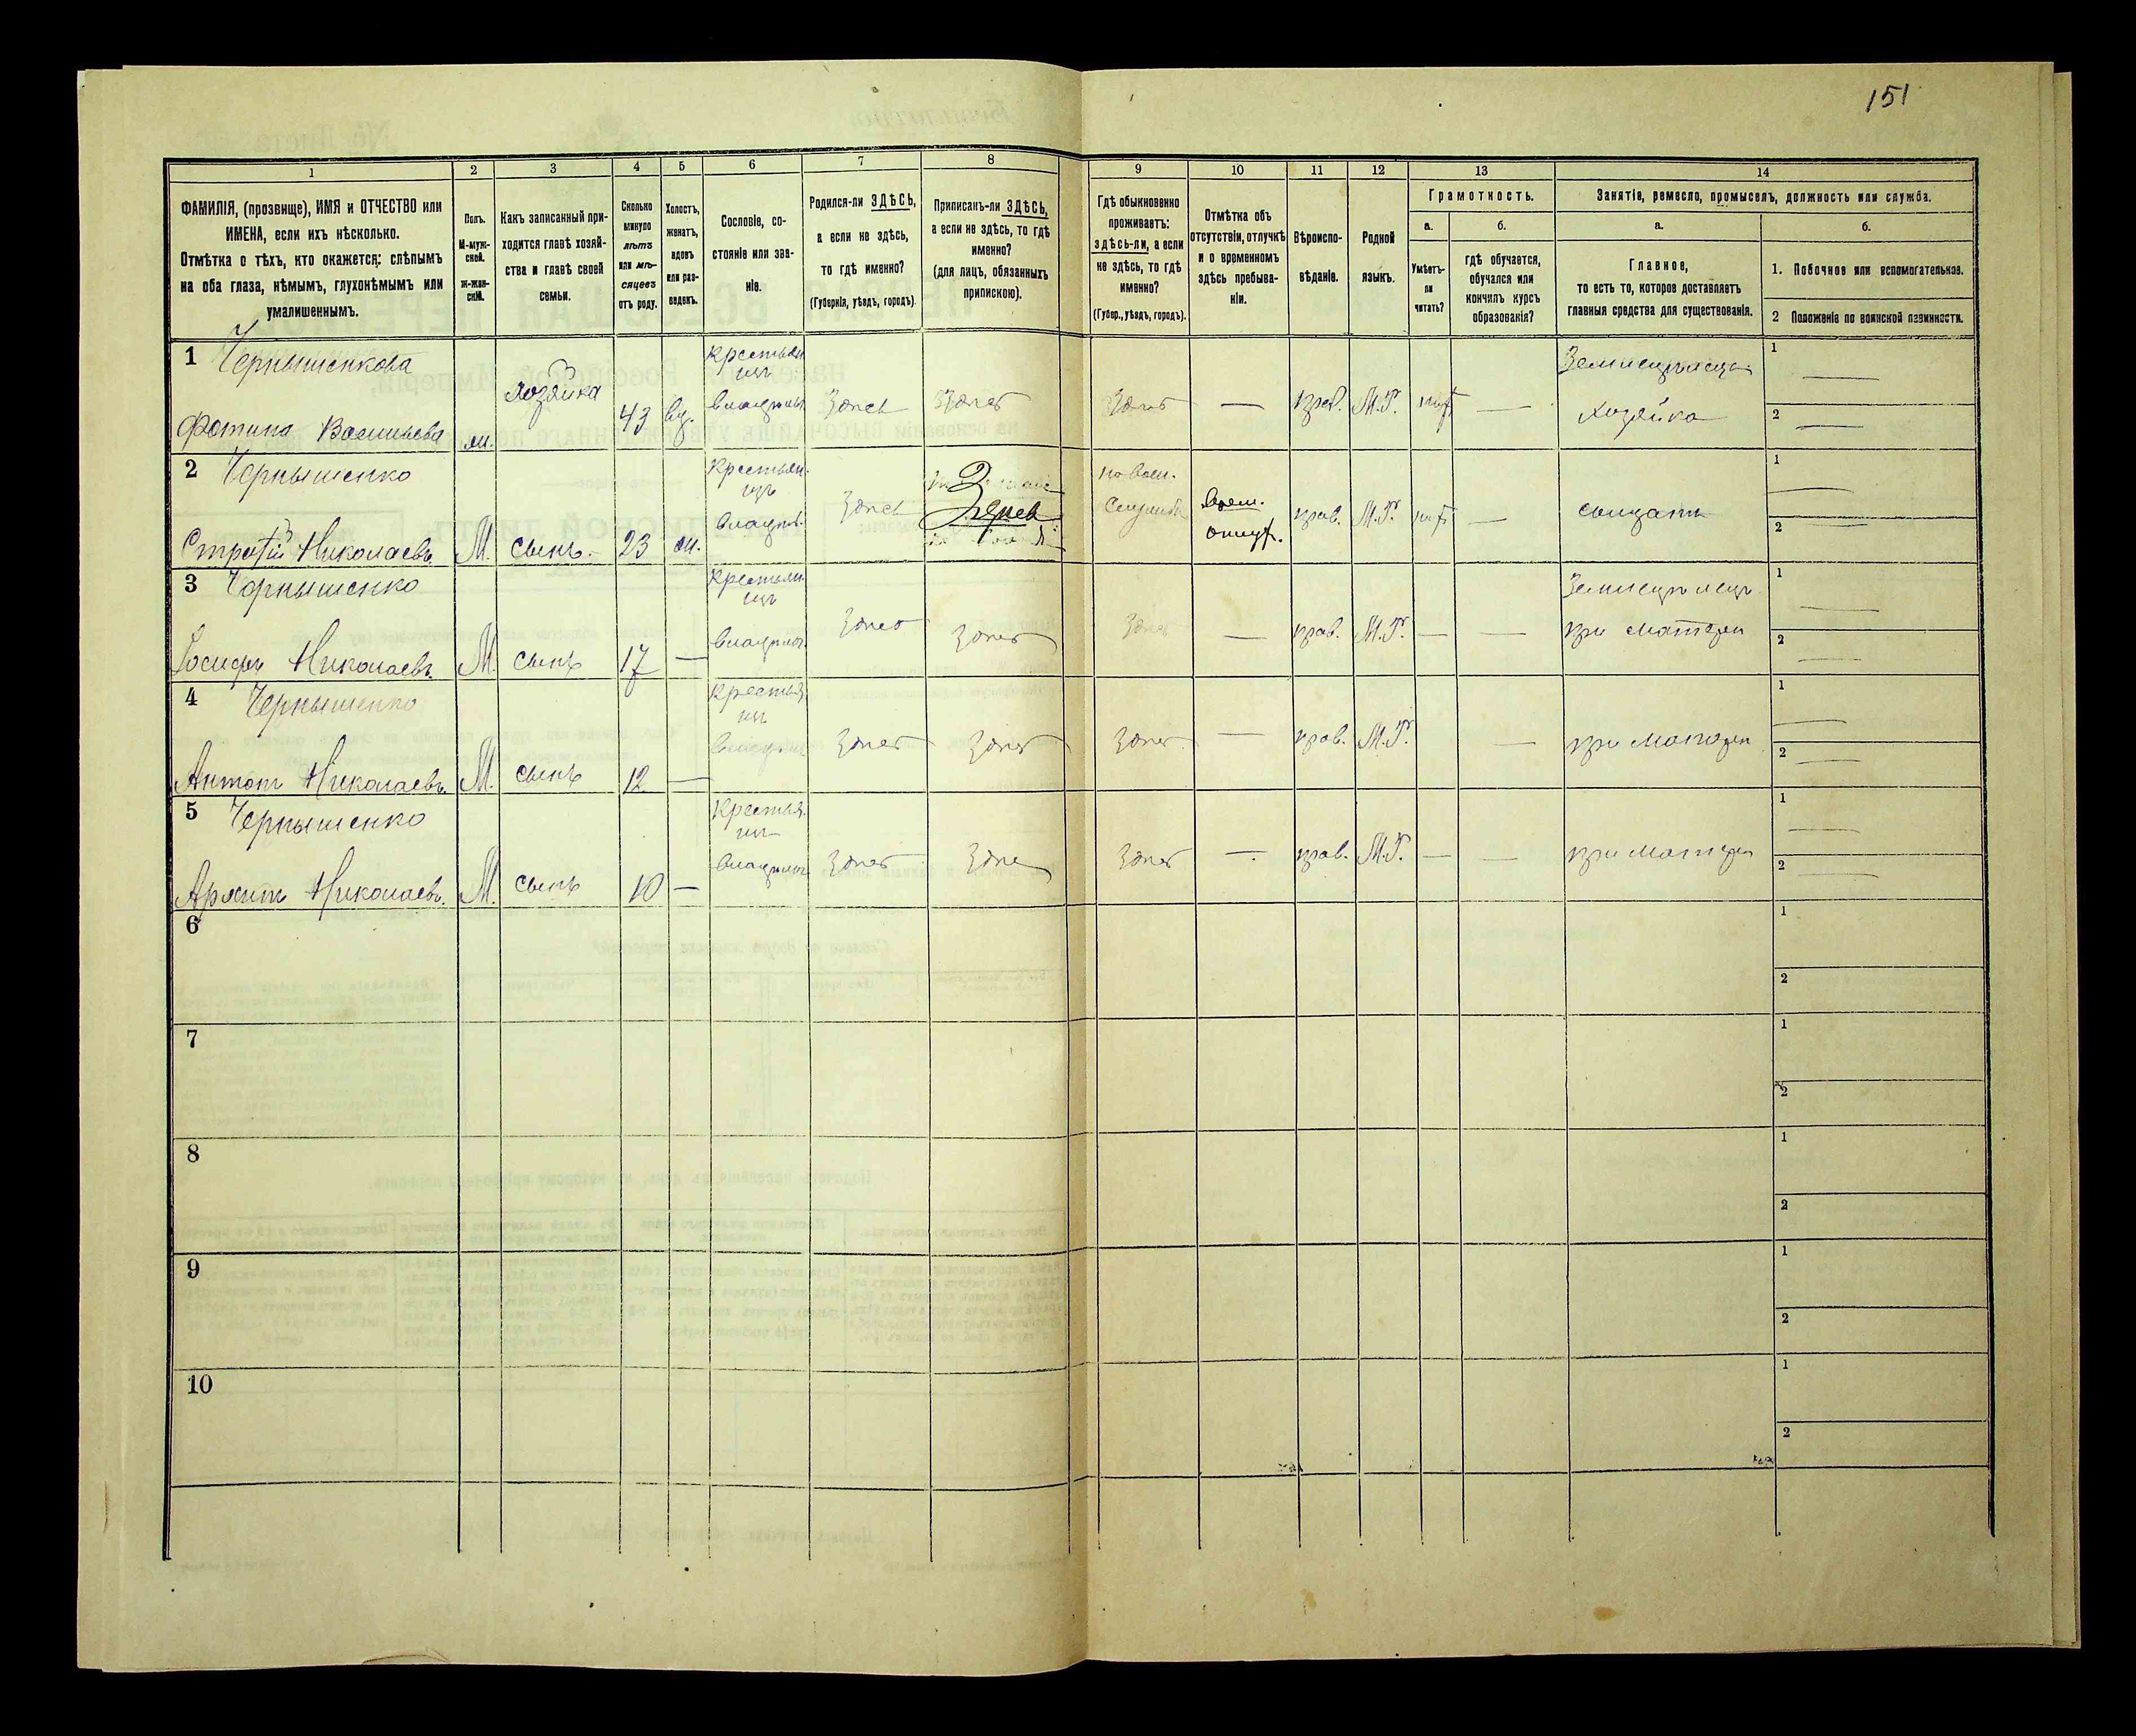 151
1 2 3 4 5 6 7 8 9 10 11 12 13 14
ФАМИЛІЯ, (прозвище), ИМЯ и ОТЧЕСТВО или
ИМЕНА, если ихъ нѣсколько.
Отмѣтка о тѣхъ, кто окажется: слѣпымъ
на оба глаза, нѣмымъ, глухонѣмымъ или
умалишеннымъ.
Полъ.
М-муж-
ской.
Ж-жен-
скій.
Какъ записанный при-
ходится главѣ хозяй-
ства и главѣ своей
семьи.
Сколько
минуло
лѣтъ
или мѣ-
сяцевъ
отъ роду.
Холостъ,
женатъ,
вдовъ
или раз-
веденъ.
Сословіе, со-
стояніе или зва-
ніе.
Родился-ли ЗДѢСЬ,
а если не здѣсь,
то гдѣ именно?
(Губернія, уѣздъ, городъ).
Приписанъ-ли ЗДѢСЬ,
а если не здѣсь, то гдѣ
именно?
(для лицъ, обязанныхъ
припискою).
Гдѣ обыкновенно
проживаетъ:
здѣсь-ли, а если
не здѣсь, то гдѣ
именно?
(Губер., уѣздъ, городъ).
Отмѣтка объ
отсутствіи, отлучкѣ
и о временномъ
здѣсь пребыва-
ніи.
Вѣроиспо-
вѣданіе.
Родной
языкъ.
Грамотность.
а.
Умѣетъ-
ли
читать?
б.
гдѣ обучается,
обучался или
кончилъ курсъ
образованія?
Занятіе, ремесло, промыселъ, должность или служба.
а.
Главное,
то есть то, которое доставляетъ
главныя средства для существованія.
б.
1. Побочное или вспомогательное.
2 Положеніе по воинской повинности.
1 Чернышенкова
Фотина Васильева
хозяйка 43 вд.
Крестьян.
изъ
владѣльч.
здѣсь здѣсь здѣсь — прав. М.Р. —
Земледѣлецъ
хозяйка
1 —
2 —
2 Чернышенко
Николаевъ М. сынъ. 23
Крестьян.
изъ
владѣл.
здѣсь
по воен.
службѣ
Врем.
отпус.
прав. М.Р. —
солдатъ
1 —
2 —
3 Чернышенко
Іосифъ Николаевъ М. сынъ 17 —
Крестьян.
изъ
владѣльч.
здѣсь здѣсь здѣсь — прав. М.Р. — —
Земледѣлецъ
при матери
1 —
2 —
4 Чернышенко
Антонъ Николаевъ М. сынъ 12 —
Крестья.
изъ
владѣльч.
здѣсь здѣсь здѣсь — прав. М.Р. —
при матери
1 —
2 —
5 Чернышенко
Николаевъ М. сынъ 10 —
Крестья.
изъ
владѣльч.
здѣсь здѣсь здѣсь — прав. М.Р. — —
при матери
1 —
2 —
6
1
2
7
1
2
8
1
2
9
1
2
10
1
2